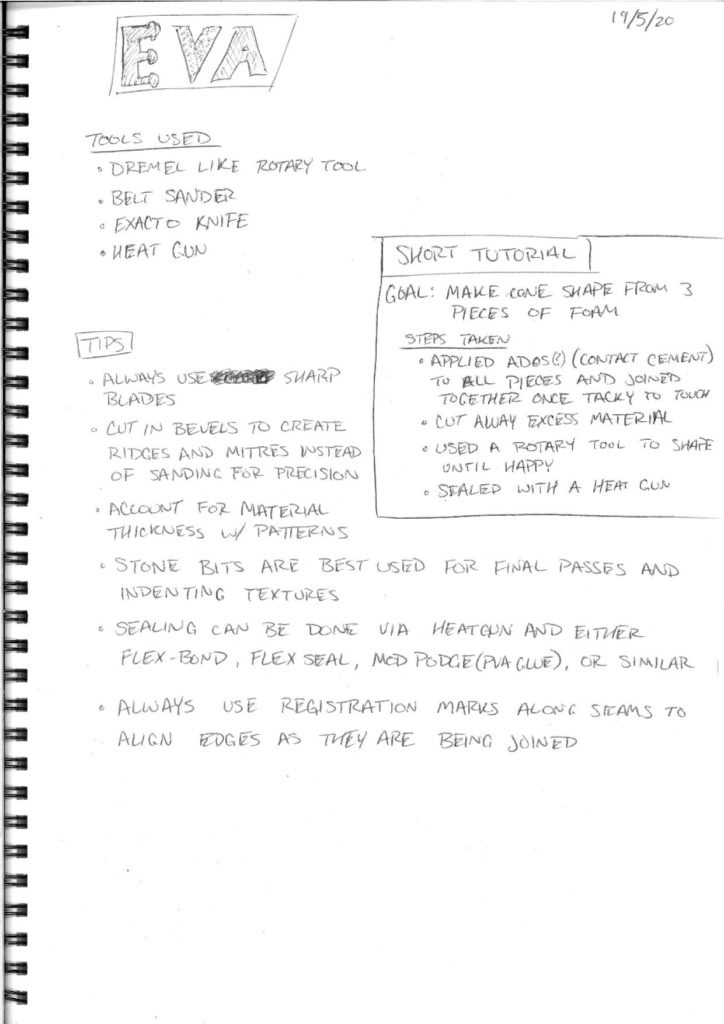 EVA
19/5/20
TOOLS USED
• DREMEL LIKE ROTARY TOOL
• BELT SANDER
• EXACTO KNIFE
• HEAT GUN
SHORT TUTORIAL
GOAL: MAKE CONE SHAPE FROM 3
PIECES OF FOAM
STEPS TAKEN
• APPLIED ADOS(?) (CONTACT CEMENT)
TO ALL PIECES AND JOINED
TOGETHER ONCE TACKY TO TOUCH
• CUT AWAY EXCESS MATERIAL
• USED A ROTARY TOOL TO SHAPE
UNTIL HAPPY
• SEALED WITH A HEAT GUN
TIPS
• ALWAYS USE SHARP
BLADES
• CUT IN BEVELS TO CREATE
RIDGES AND MITRES INSTEAD
OF SANDING FOR PRECISION
• ACCOUNT FOR MATERIAL
THICKNESS W/ PATTERNS
• STONE BITS ARE BEST USED FOR FINAL PASSES AND
INDENTING TEXTURES
• SEALING CAN BE DONE VIA HEATGUN AND EITHER
FLEX-BOND, FLEX SEAL, MOD PODGE(PVA GLUE), OR SIMILAR
• ALWAYS USE REGISTRATION MARKS ALONG SEAMS TO
ALIGN EDGES AS THEY ARE BEING JOINED